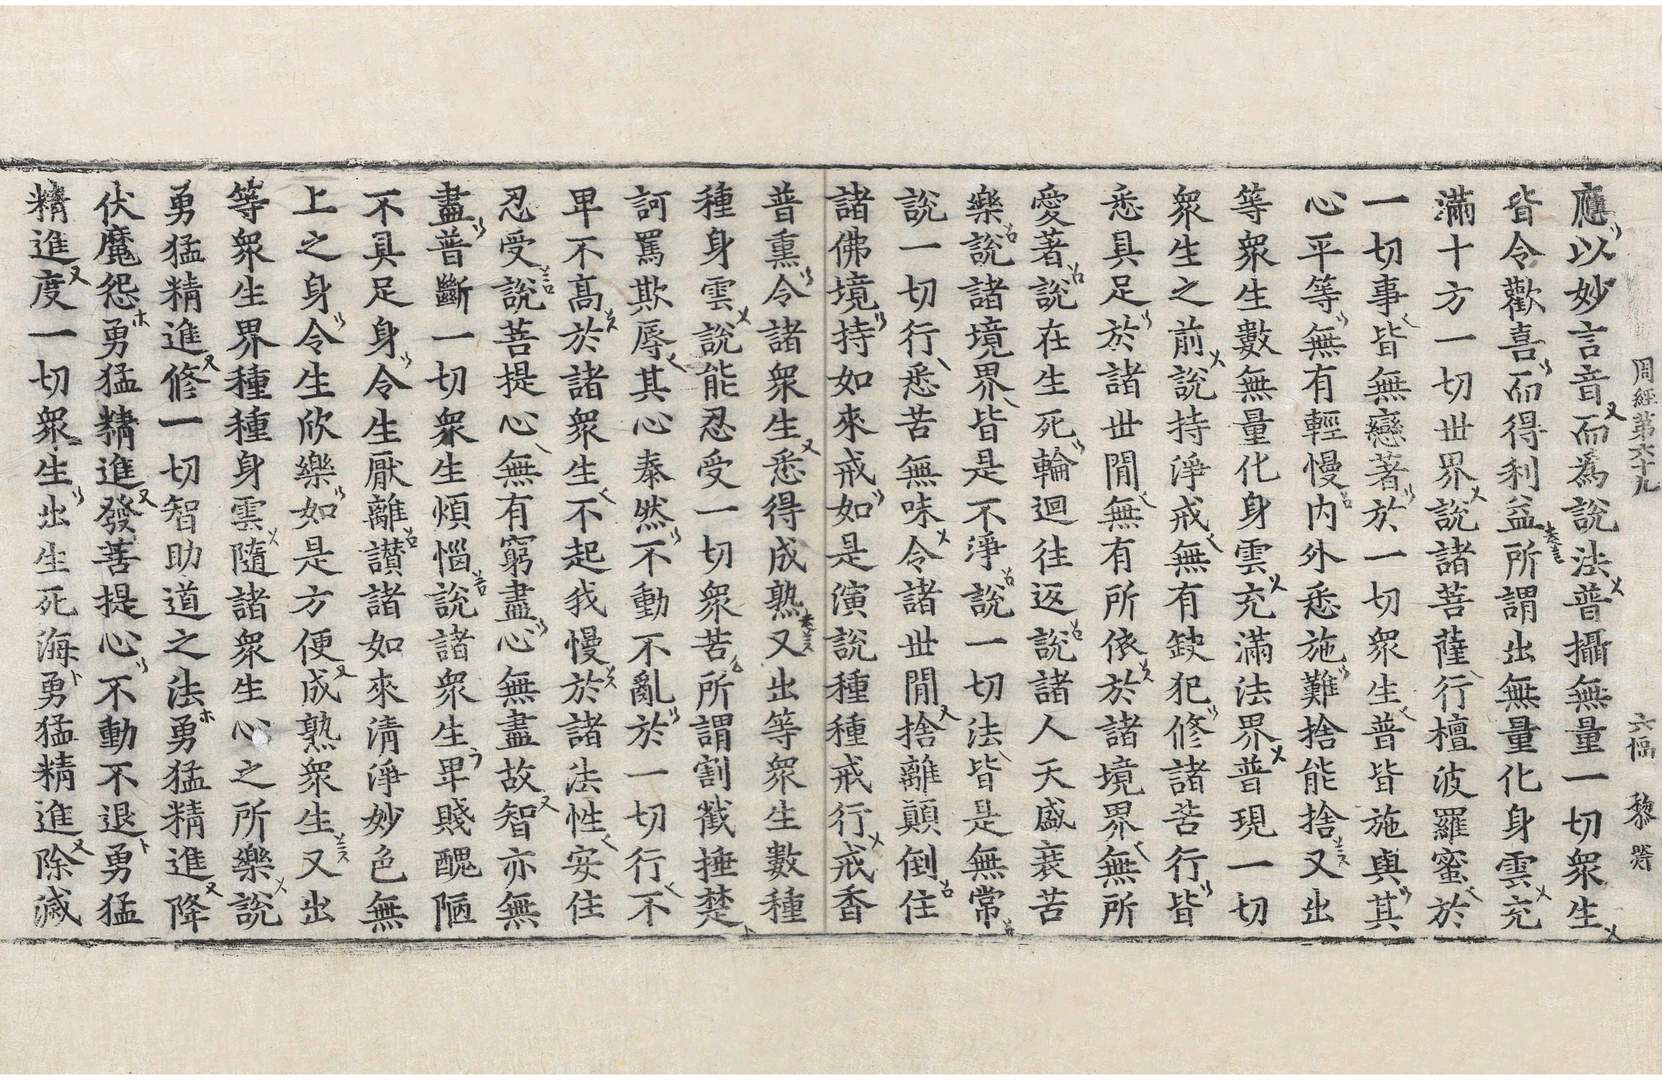 周經第六十九 六幅 黎 弼
應以妙言音而爲說法普攝無量一切衆生
皆令歡喜而得利益所謂出無量化身雲充
滿十方一切世界說諸菩薩行檀波羅蜜於
一切事皆無戀著於一切衆生普皆施與其
心平等無有輕慢內外悉施難捨能捨又出
等衆生數無量化身雲充滿法界普現一切
衆生之前說持淨戒無有缺犯修諸苦行皆
悉具足於諸世間無有所依於諸境界無所
愛著說在生死輪迴往返說諸人天盛衰苦
樂說諸境界皆是不淨說一切法皆是無常
說一切行悉苦無味令諸世間捨離顚倒住
諸佛境持如來戒如是演說種種戒行戒香
普熏令諸衆生悉得成熟又出等衆生數種
種身雲說能忍受一切衆苦所謂割截捶楚
訶罵欺辱其心泰然不動不亂於一切行不
卑不高於諸衆生不起我慢於諸法性安住
忍受說菩提心無有窮盡心無盡故智亦無
盡普斷一切衆生煩惱說諸衆生卑賤醜陋
不具足身令生厭離讚諸如來淸淨妙色無
上之身令生欣樂如是方便成熟衆生又出
等衆生界種種身雲隨諸衆生心之所樂說
勇猛精進修一切智助道之法勇猛精進降
伏魔怨勇猛精進發菩提心不動不退勇猛
精進度一切衆生出生死海勇猛精進除滅